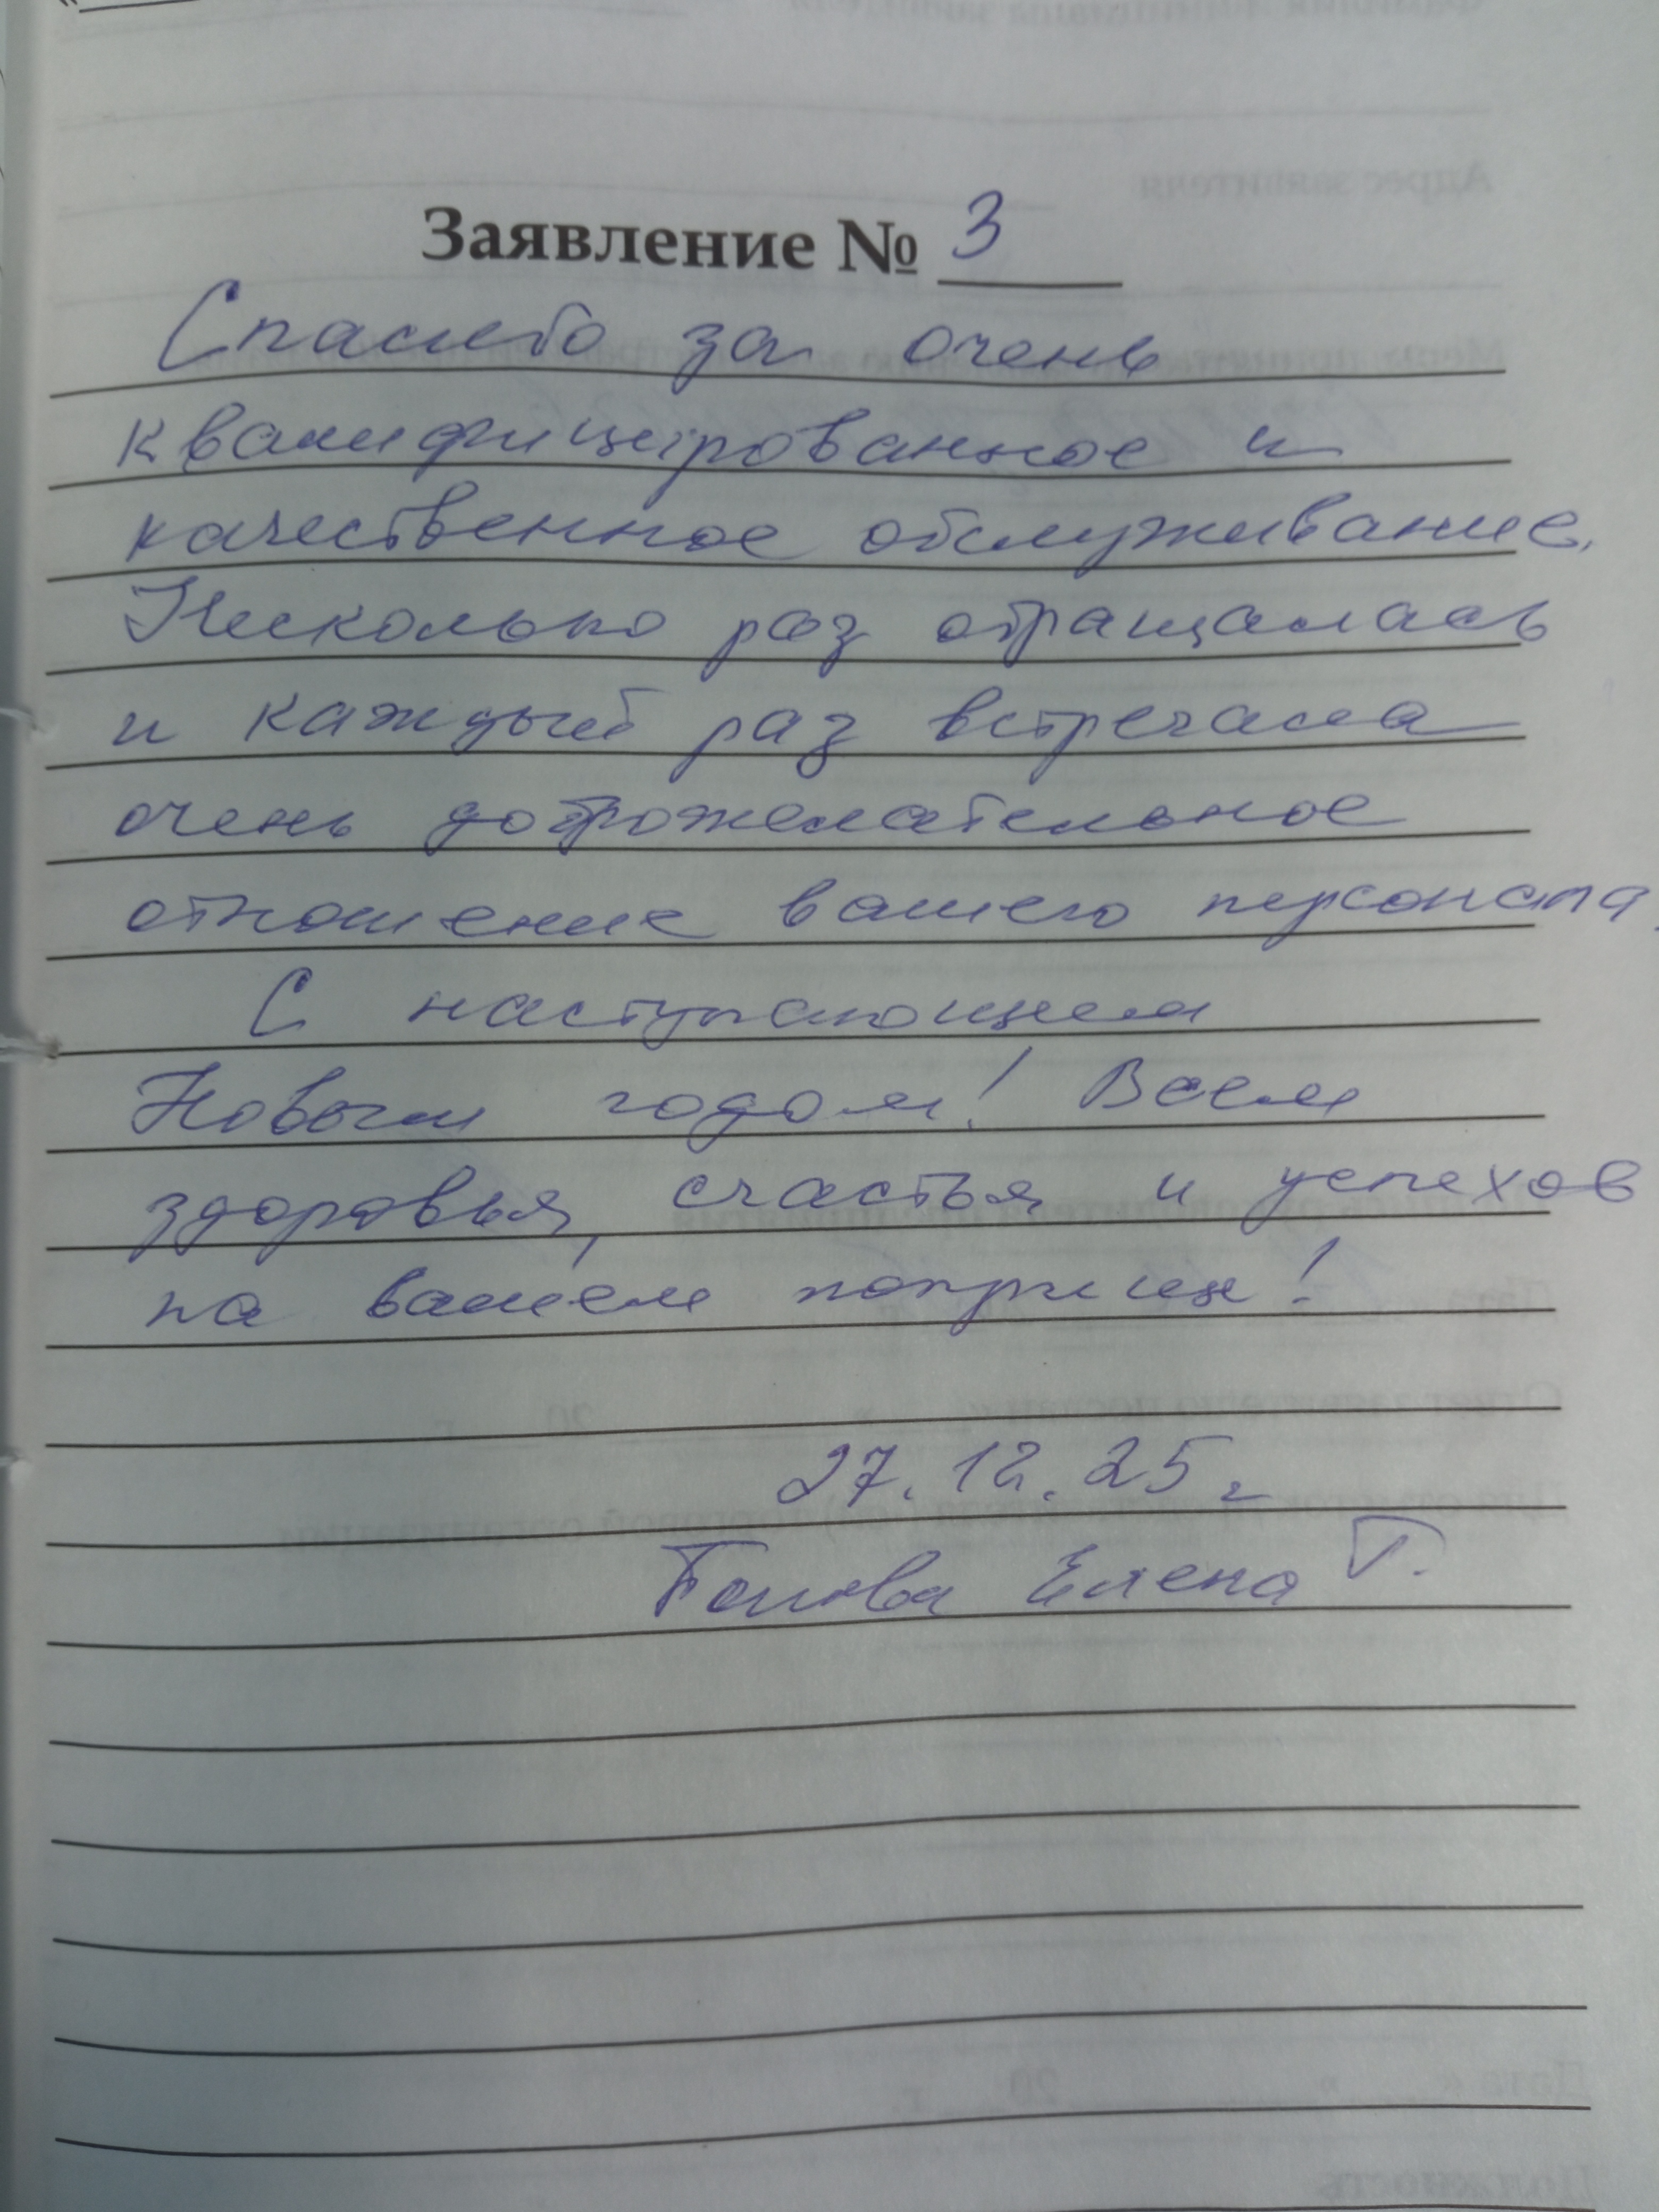 Заявление № 3
Спасибо за очень
квалифицированное и
качественное обслуживание.
Несколько раз обращалась
и каждый раз встречала
очень доброжелательное
отношение вашего персонала.
С наступающем
Новым годом! Всем
здоровья, счастья и успехов
на вашем поприще!
27.12.25 г
Елена Г.